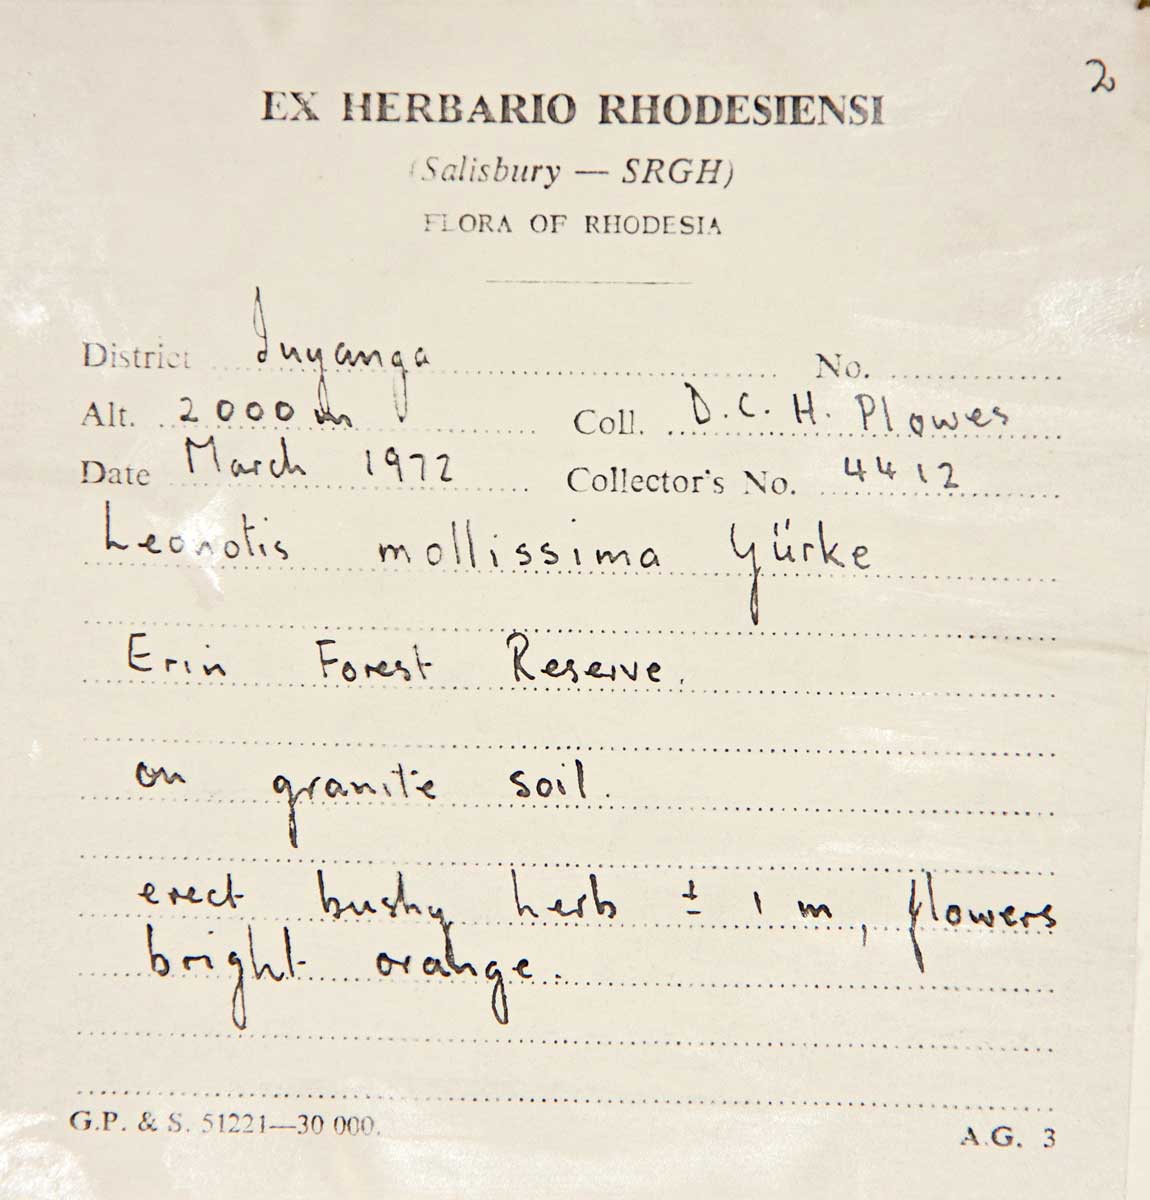 2
EX HERBARIO RHODESIENSI
(Salisbury — SRGH)
FLORA OF RHODESIA
District Inyanga No.
Alt. 2000 m Coll. D.C.H. Plowes
Date March 1972 Collector's No. 4412
Leonotis mollissima Gürke
Erin Forest Reserve.
on granite soil.
erect bushy herb ± 1 m, flowers
bright orange.
G.P. & S. 51221—30 000. A.G. 3